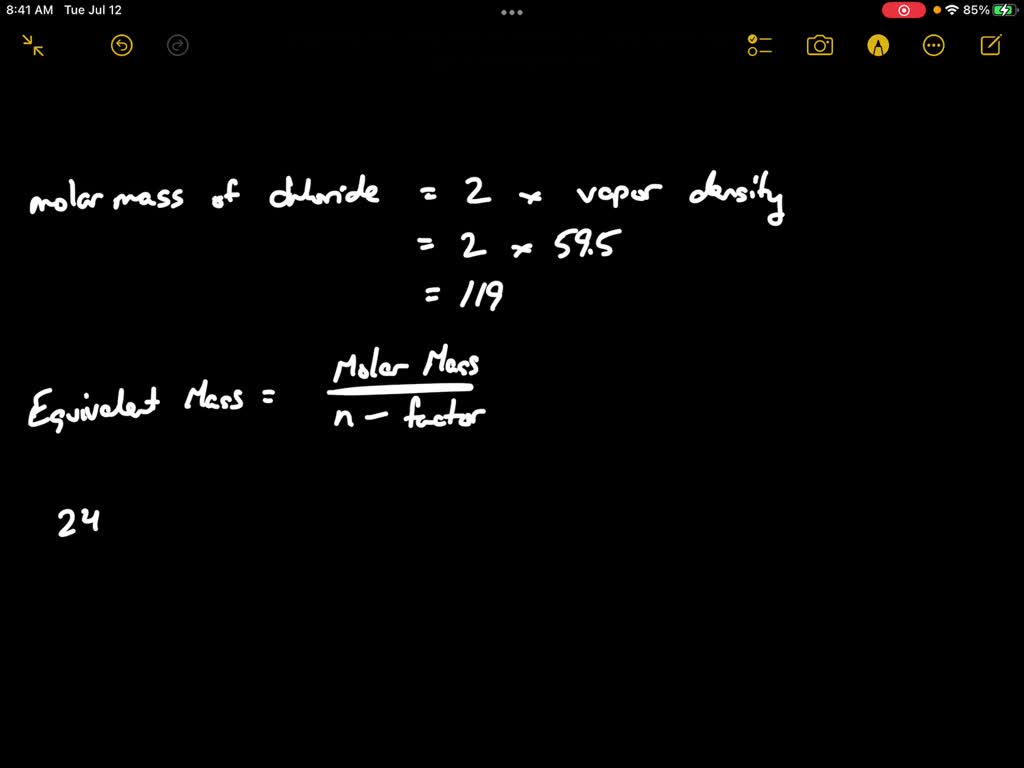 8:41 AM Tue Jul 12 85%
molar mass of chloride = 2 × vapor density
= 2 × 59.5
= 119
Equivalent Mass = Molar Mass
n - factor
24